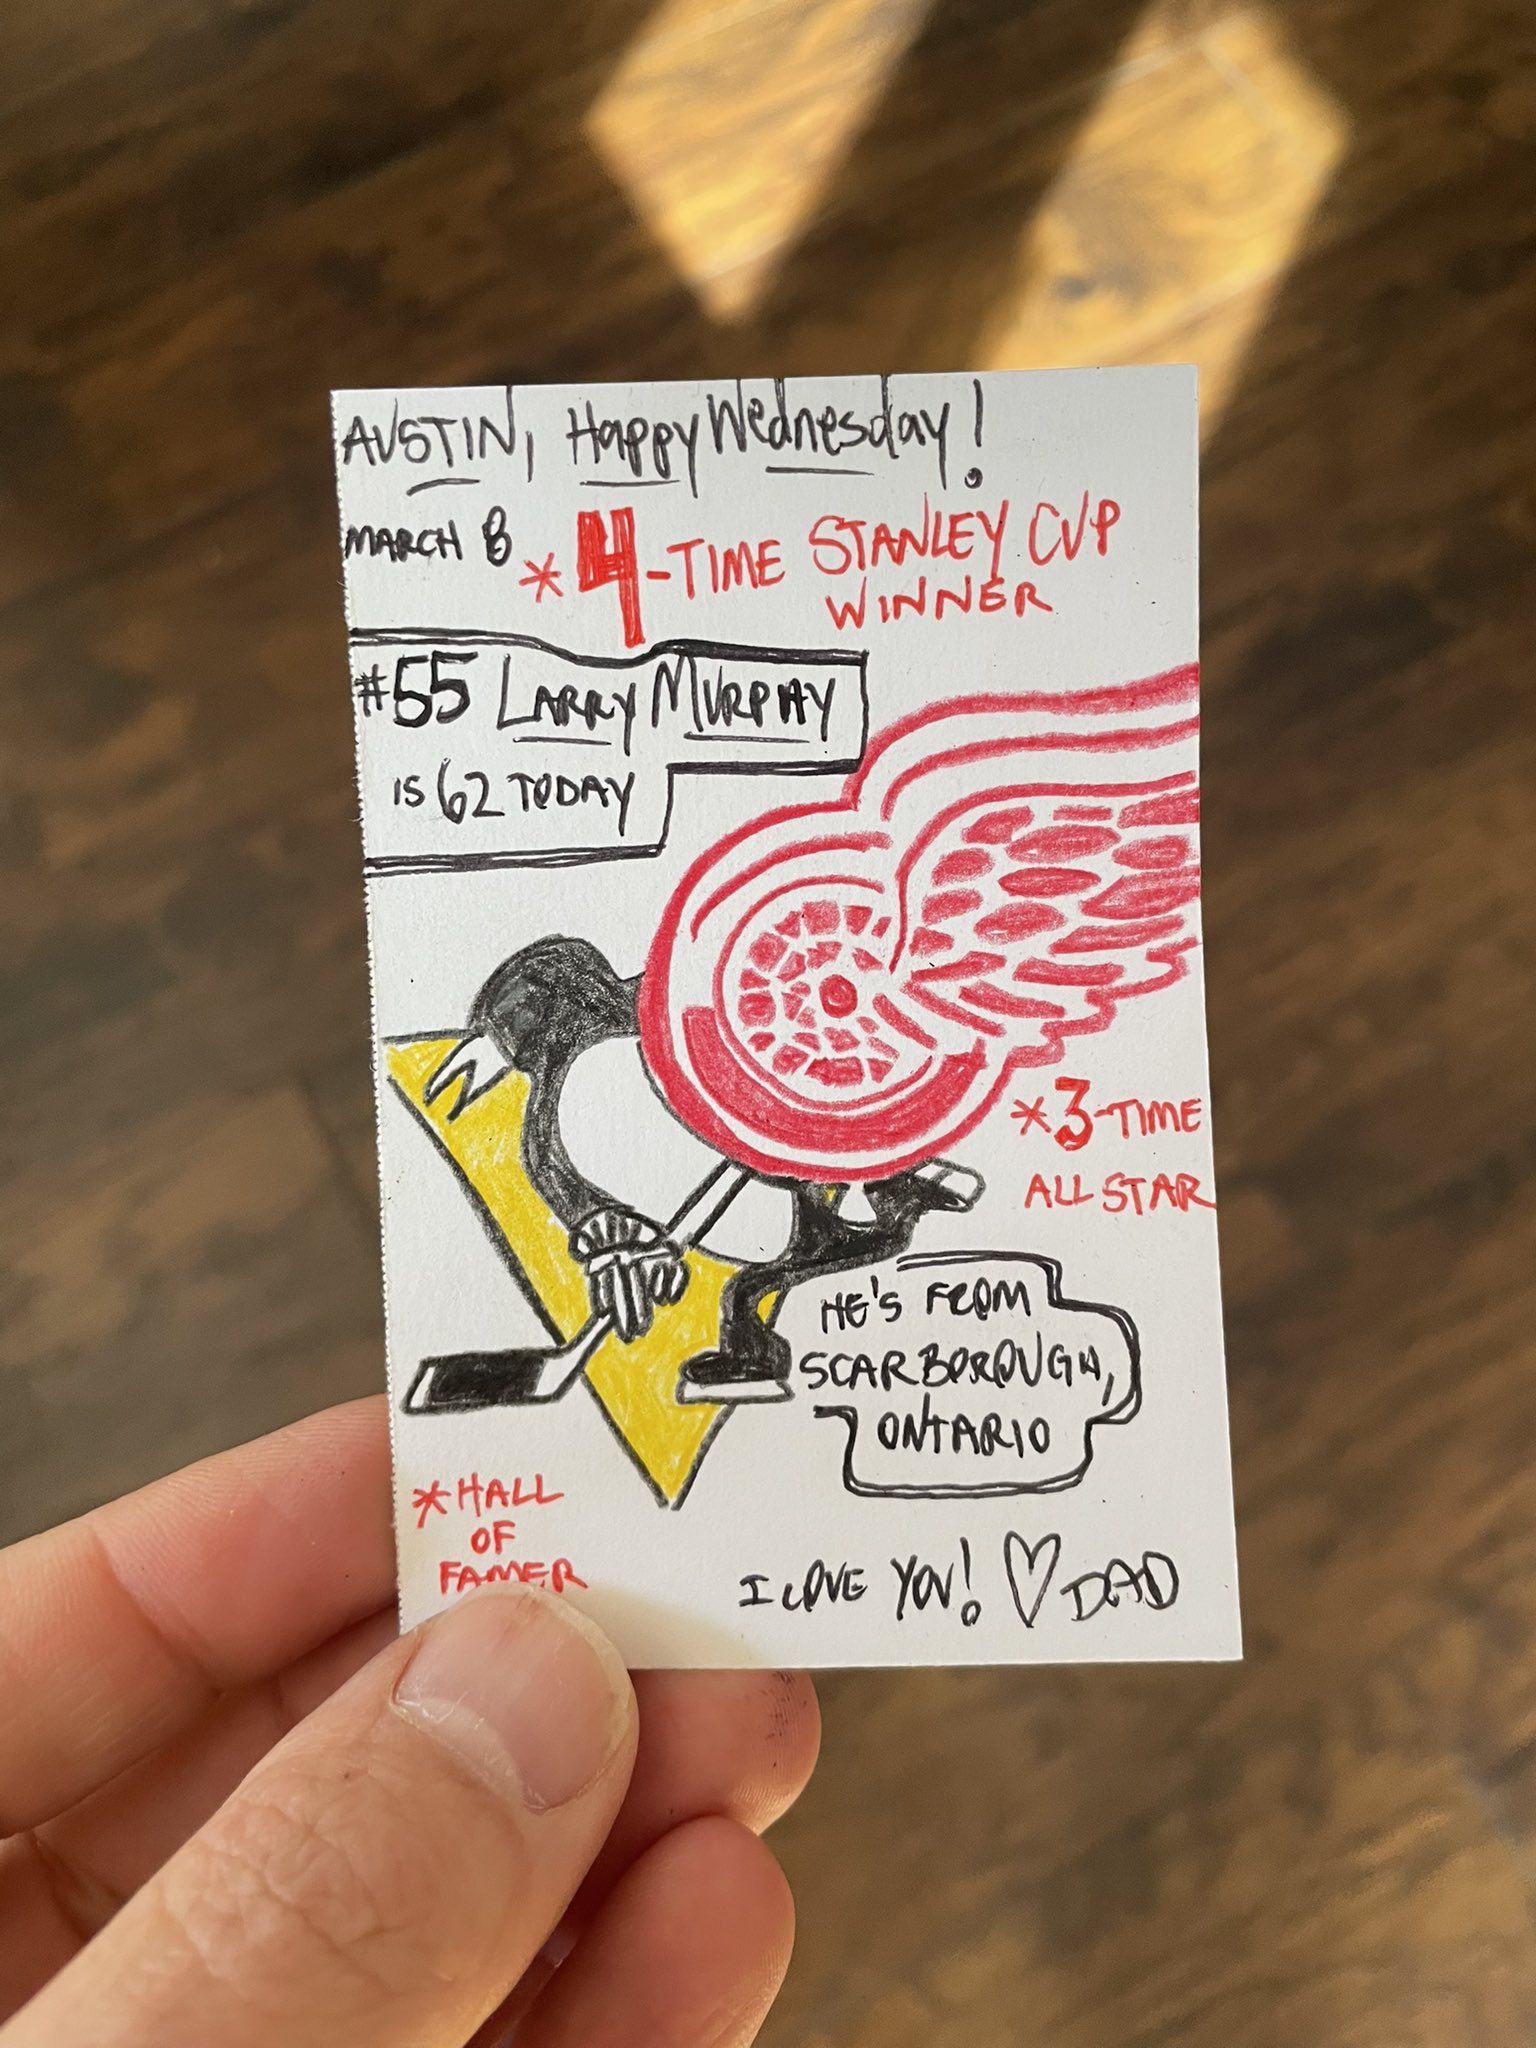 AUSTIN, Happy Wednesday!
MARCH 8
* 4-TIME STANLEY CUP
WINNER
#55 LARRY MURPHY
IS 62 TODAY
* 3-TIME
ALL STAR
HE'S FROM
SCARBOROUGH,
ONTARIO
* HALL
OF
FAMER
I LOVE YOU! ♡ DAD